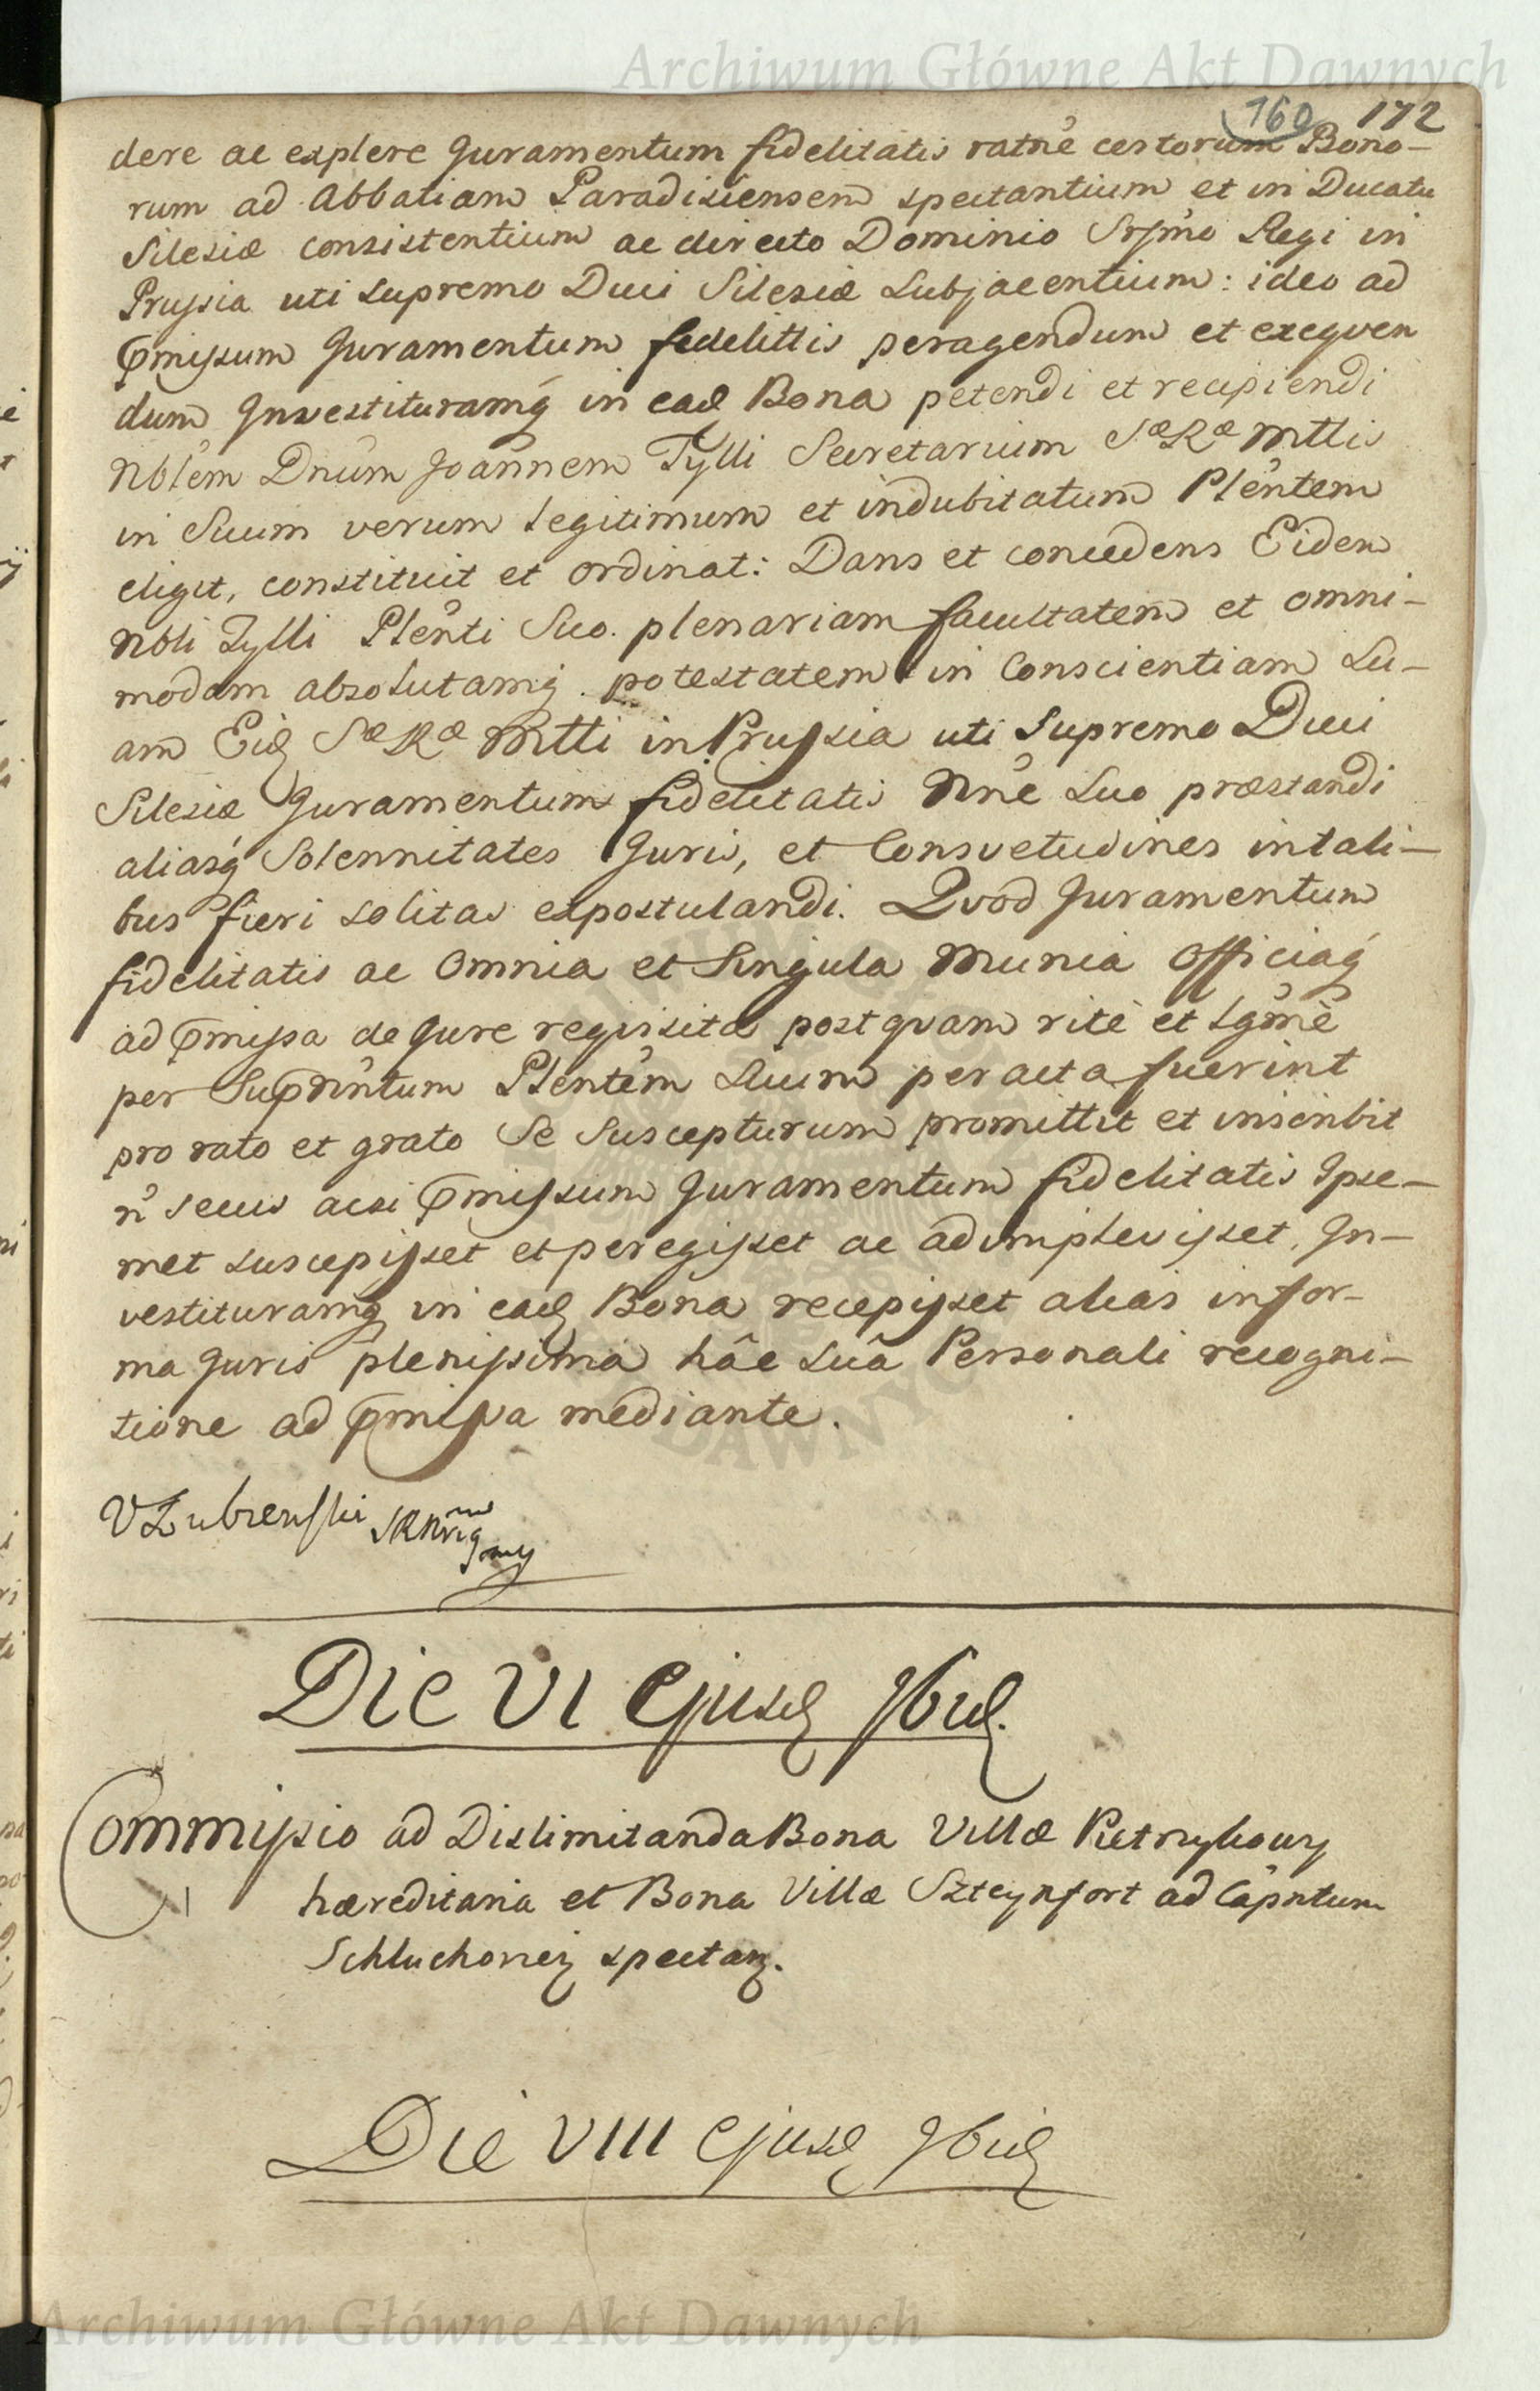 Archiwum Główne Akt Dawnych
160 172
dere ac explere Juramentum fidelitatis ratne certorum Bono-
rum ad Abbatiam Paradisiensem spectantium et in Ducatu
Silesiæ consistentium ac directo Dominio Srsmo Regi in
Prussia uti supremo Duci Silesiæ Subjacentium: ideo ad
pmissum Juramentum fidelittis peragendum et exequen
dum Investituramq in ead Bona petendi et recipiendi
Nblem Dnum Joannem Tylli Secretarium Sæ Ræ Mttis
in Suum verum Legitimum et indubitatum Plentem
eligit, constituit et ordinat: Dans et concedens Eidem
Nbli Tylli Plenti Suo. plenariam facultatem et omni-
modam absolutamq. potestatem in Conscientiam Su-
am Eid Sæ Ræ Mtti in Prussia uti Supremo Duci
Silesiæ Juramentum fidelitatis Nne Suo præstandi
aliasq Solennitates Juris, et Consvetudines in tali-
bus fieri solitas expostulandi. Qvod Juramentum
fidelitatis ac Omnia et Singula Munia Officiaq
ad pmissa de Jure reqvisita postqvam ritè et Lgme
per Supdntum Plentem Suum peracta fuerint
pro rato et grato Se Suscepturum promittit et inscribit
n secus acsi pmissum Juramentum fidelitatis Ipse-
met suscepisset et peregisset ac adimplevisset, In-
vestituramq in ead Bona recepisset alias in for-
ma Juris plenissima hâc suâ Personali recogni-
tione ad pmissa mediante.
VŁubienski
Die VI Ejusd 9bid.
Commissio ad Dislimitanda Bona Villæ Pietrzykowy
hæreditaria et Bona Villæ Szteynfort ad Capntum
Schluchoviez spectan.
Die VIII Ejusd 9bid
Archiwum Główne Akt Dawnych